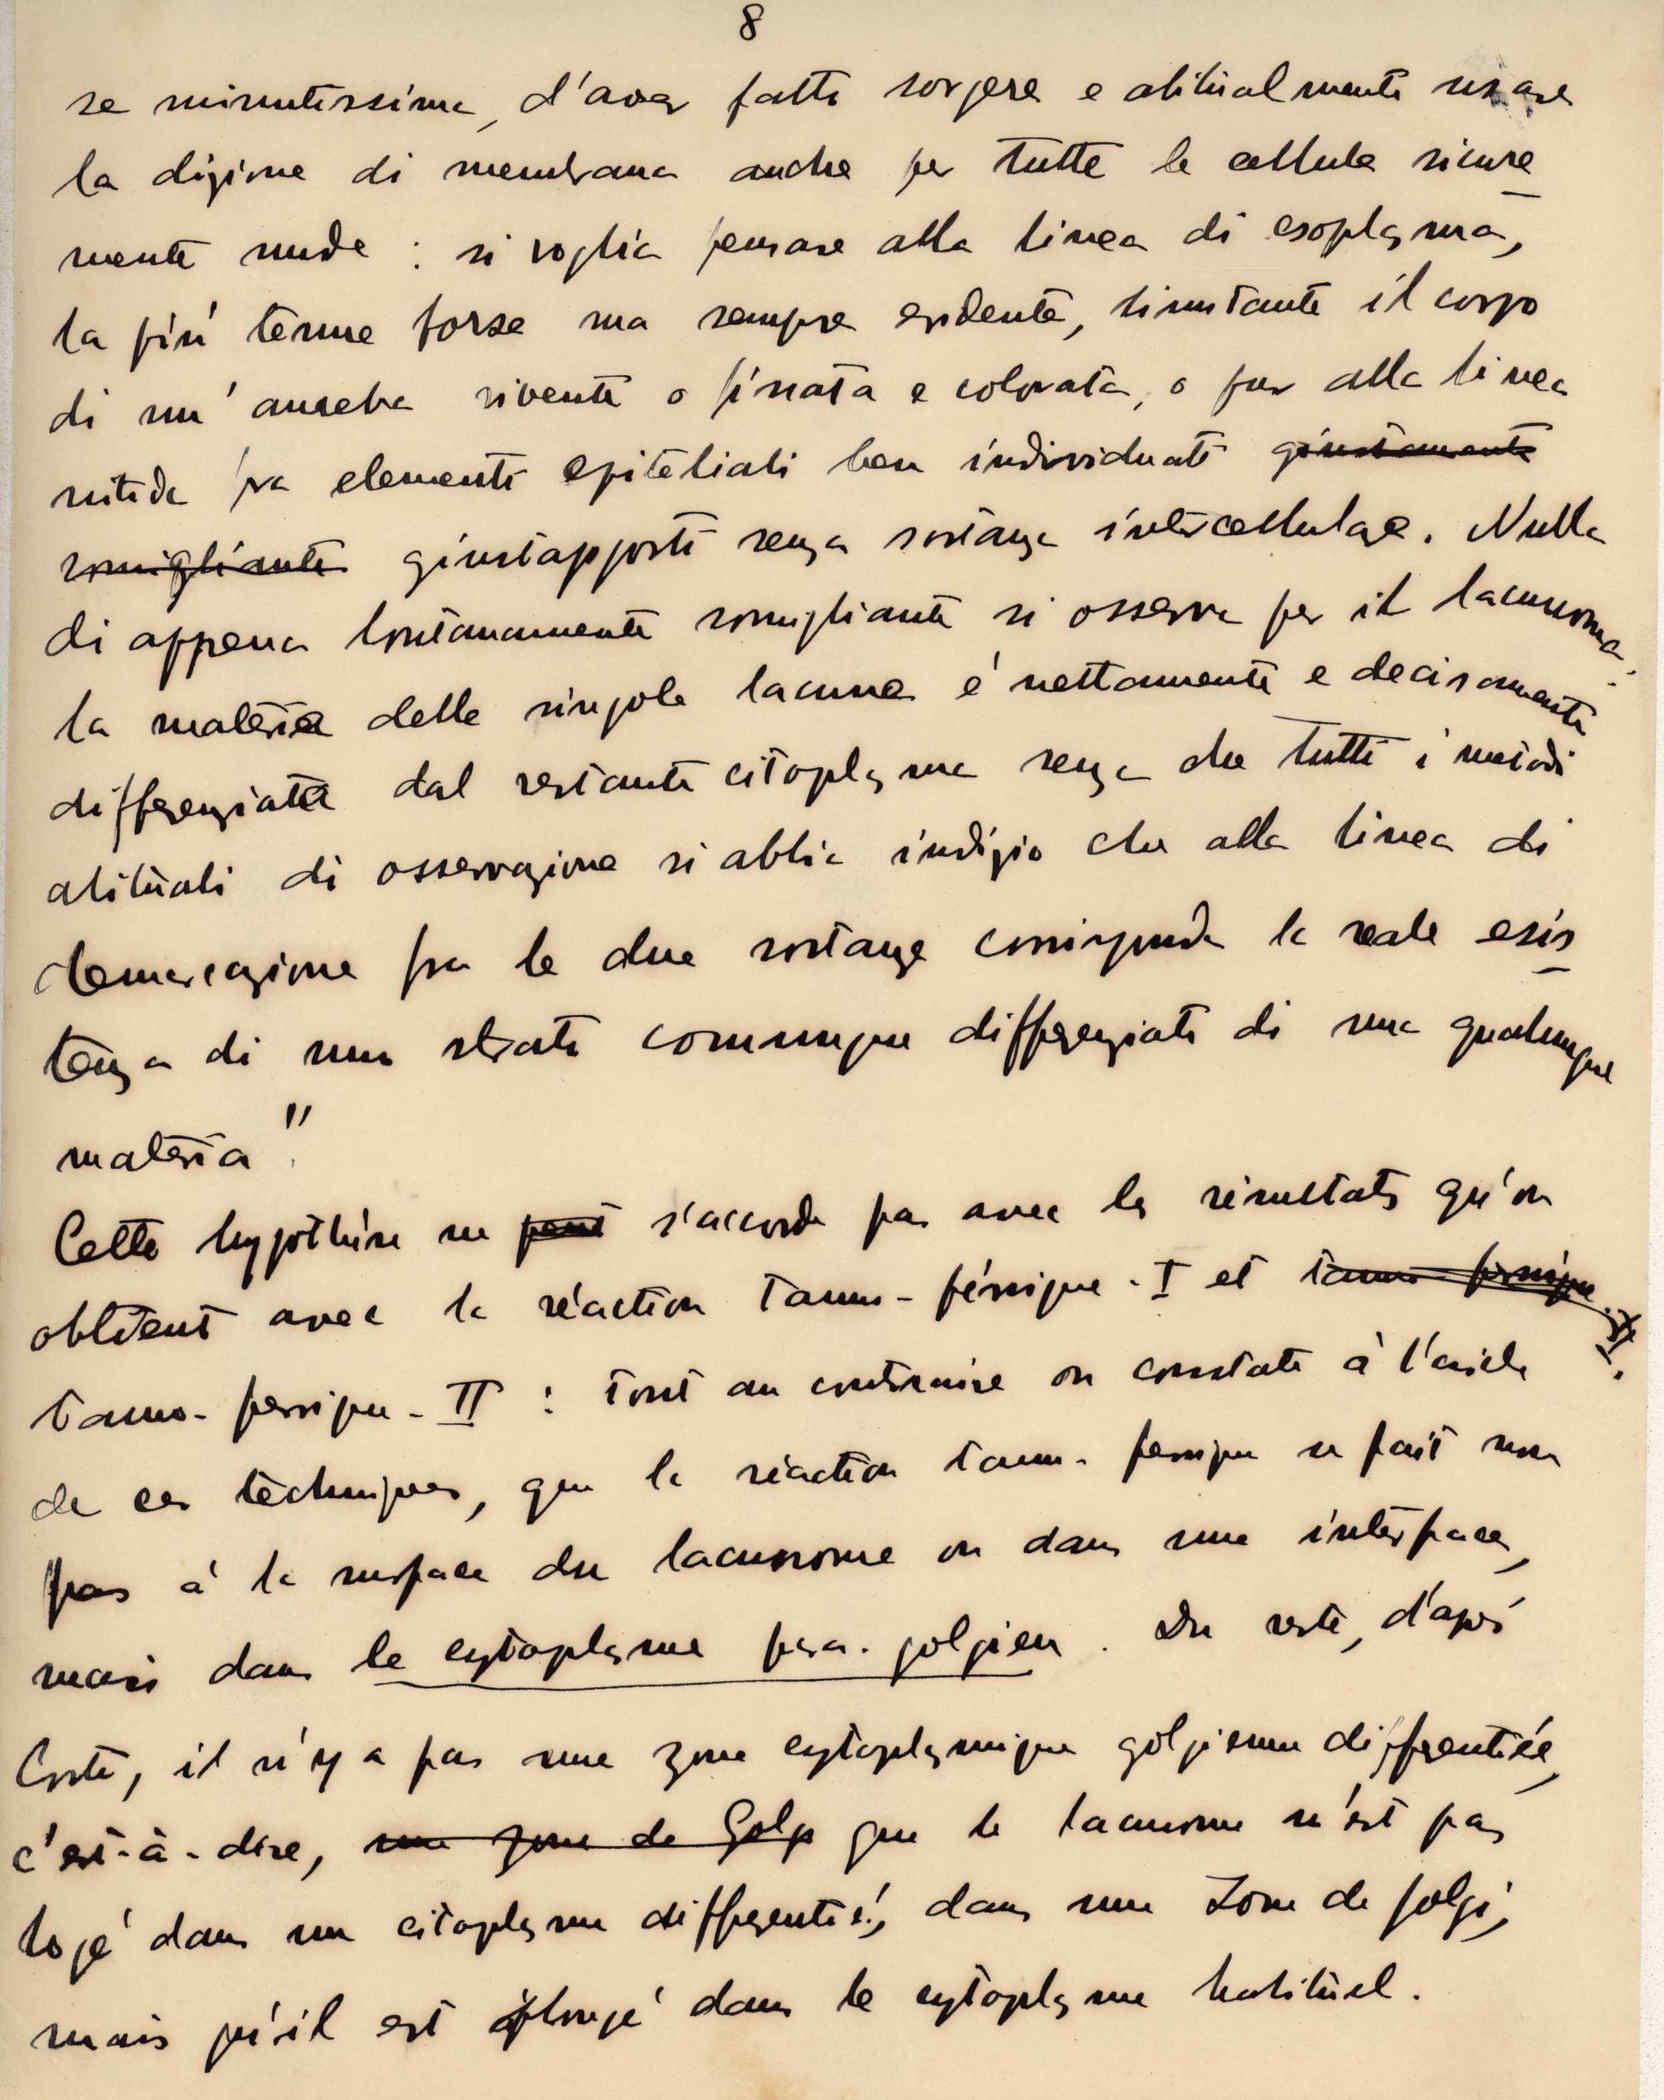 8
se minutissime, d'aver fatto sorgere e abitualmente usare
la dizione di membrana anche per tutte le cellule sicure
mente nude : si voglia pensare alla linea di esoplasma,
la più tenue forse ma sempre evidente, limitante il corpo
di un' ameba vivente o fissata e colorata, o pur alla linea
nitida fra elementi epiteliali ben individuati giustamente
somigliante giustapposti senza sostanza intercellulare. Nulla
di appena lontanamente somigliante si osserva per il lacunoma:
la materia delle singole lacune é nettamente e decisamente
differenziata dal restante citoplasma senza che tutti i metodi
abituali di osservazione si abbia indizio che alla linea di
demarcazione fra le due sostanze corrisponda la reale esis
tenza di uno strato comunque differenziato di una qualunque
materia"
Cette hypothèse ne peut s'accorde pas avec les résultats qu'on
obtient avec la réaction tanno-férrique-I et tanno-ferrique-II.
tanno-ferrique-II : tout au contraire on constate à l'aide
de ces techniques, que la réaction tanno-ferrique se fait non
pas à la surface du lacunome ou dans une interface,
mais dans le cytoplasme para-golgien. Du reste, d'après
Corti, il n'y a pas une zone cytoplasmique golgienne différentiée,
c'est-à-dire, une zone de Golgi que le lacunome n'est pas
logé dans un citoplasme différentié, dans une zone de golgi,
mais qu'il est plongé dans le cytoplasme habituel.